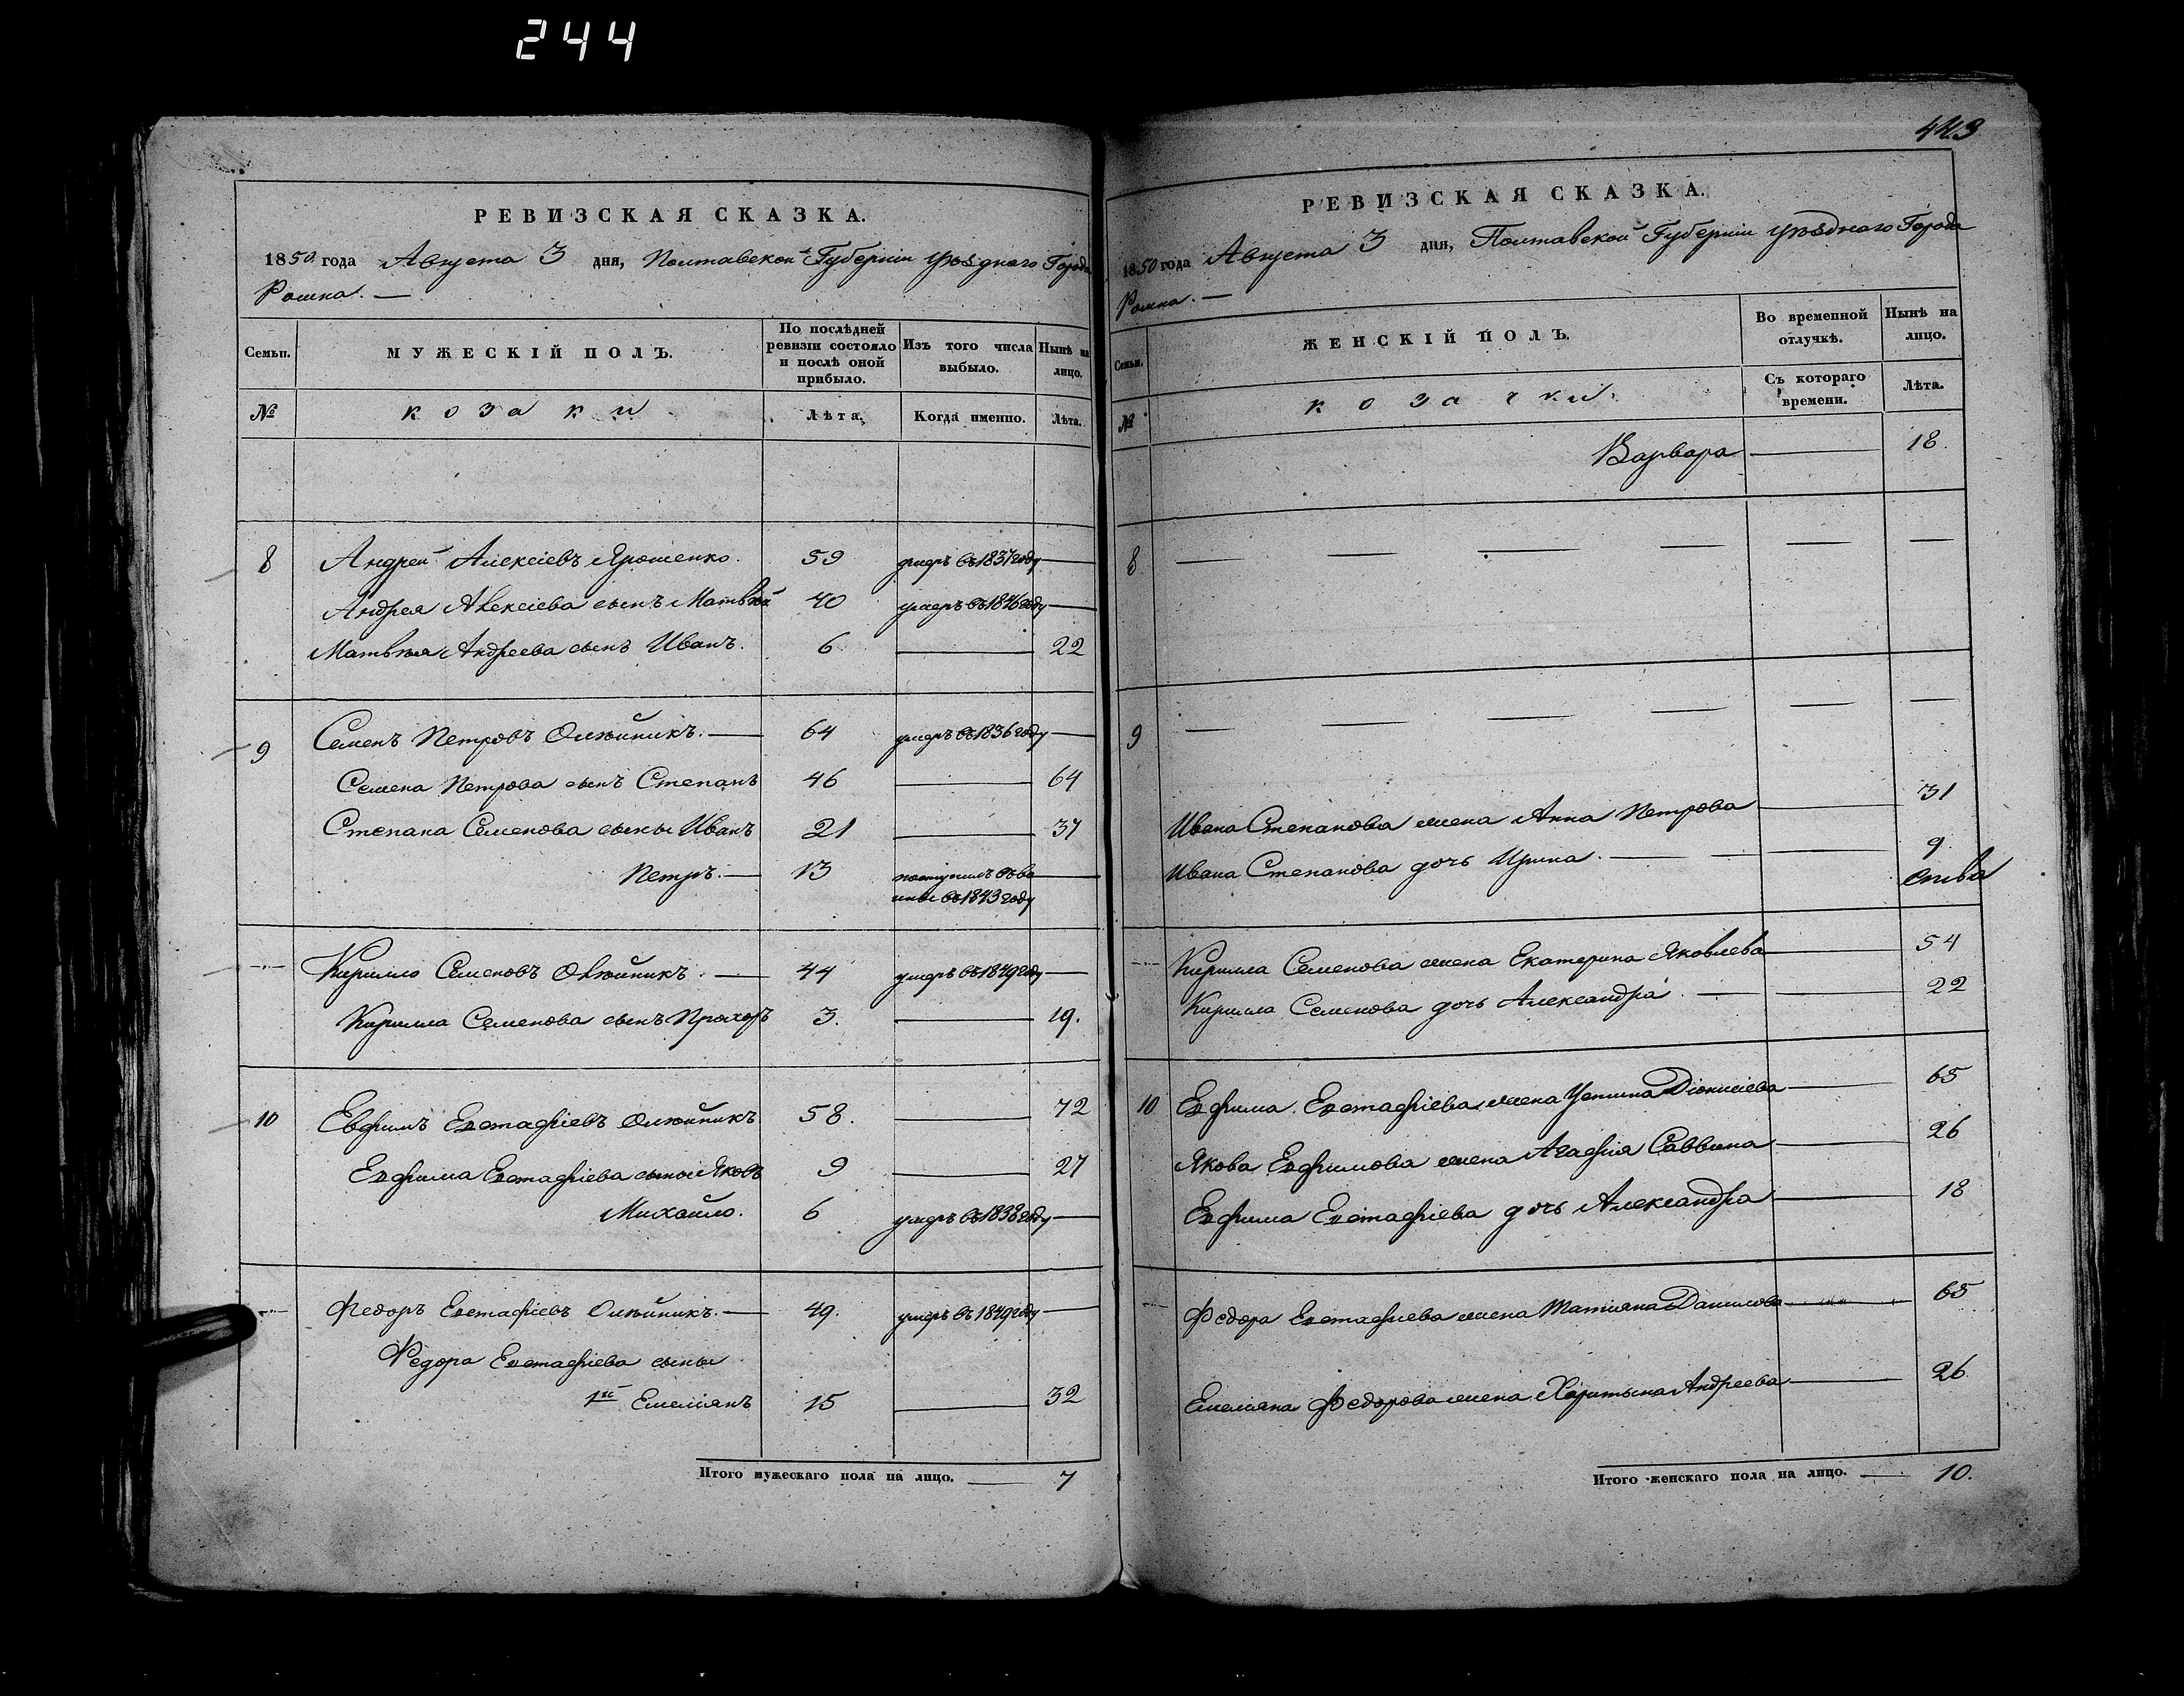 244
РЕВИЗСКАЯ СКАЗКА.
1850 года Августа 3 дня, Полтавской Губерніи уѣзднаго Города
Ромна. —
Семьи. МУЖЕСКІЙ ПОЛЪ. По послѣдней ревизіи состояло и послѣ оной прибыло. Изъ того числа выбыло. Нынѣ на лицо.
№ козаки Лѣта. Когда именно. Лѣта.
8 Андрей Алексіевъ Ярошенко. 59 умеръ въ 1837 году —
Андрея Алексіева сынъ Матвѣй 40 умеръ въ 1846 году —
Матвѣя Андреева сынъ Иванъ. 6 — 22
9 Семенъ Петровъ Олѣйникъ. — 64 умеръ въ 1836 году —
Семена Петрова сынъ Степанъ 46 — 64
Степана Семенова сыны Иванъ 21 — 37
Петръ. — 13 въ 1843 году
Кирилло Семеновъ Олѣйникъ. — 44 умеръ въ 1849 году —
Кирилла Семенова сынъ Прохоръ 3. — 19.
10 Евфимъ Евстафіевъ Олѣйникъ 58. — 72
Евфима Евстафіева сыны Яковъ 9 — 27
Михайло. 6 умеръ въ 1838 году —
Федоръ Евстафіевъ Олѣйникъ. — 49. умеръ въ 1849 году —
Федора Евстафіева сыны
1й Емельянъ 15 — 32
Итого мужескаго пола на лицо. — 7
443
РЕВИЗСКАЯ СКАЗКА.
1850 года Августа 3 дня, Полтавской Губерніи уѣзднаго Города
Ромна. —
Семьи. ЖЕНСКІЙ ПОЛЪ. Во временной отлучкѣ. Нынѣ на лицо.
№ козачки. Съ котораго времени. Лѣта.
Варвара — 18.
8 — — — — — —
9 — — — — — —
Ивана Степанова жена Анна Петрова — 31
Ивана Степанова дочь Ирина. — — 9
Кирилла Семенова жена Екатерина Яковлева — 54
Кирилла Семенова дочь Александра. — — 22
10 Евфима Евстафіева жена Устина Діонисіева — 65
Якова Евфимова жена Агафія Саввина — 26
Евфима Евстафіева дочь Александра — 18
Федора Евстафіева жена Татіяна Данилова — 65
Емельяна Федорова жена Харитына Андреева — 26.
Итого женскаго пола на лицо. — 10.